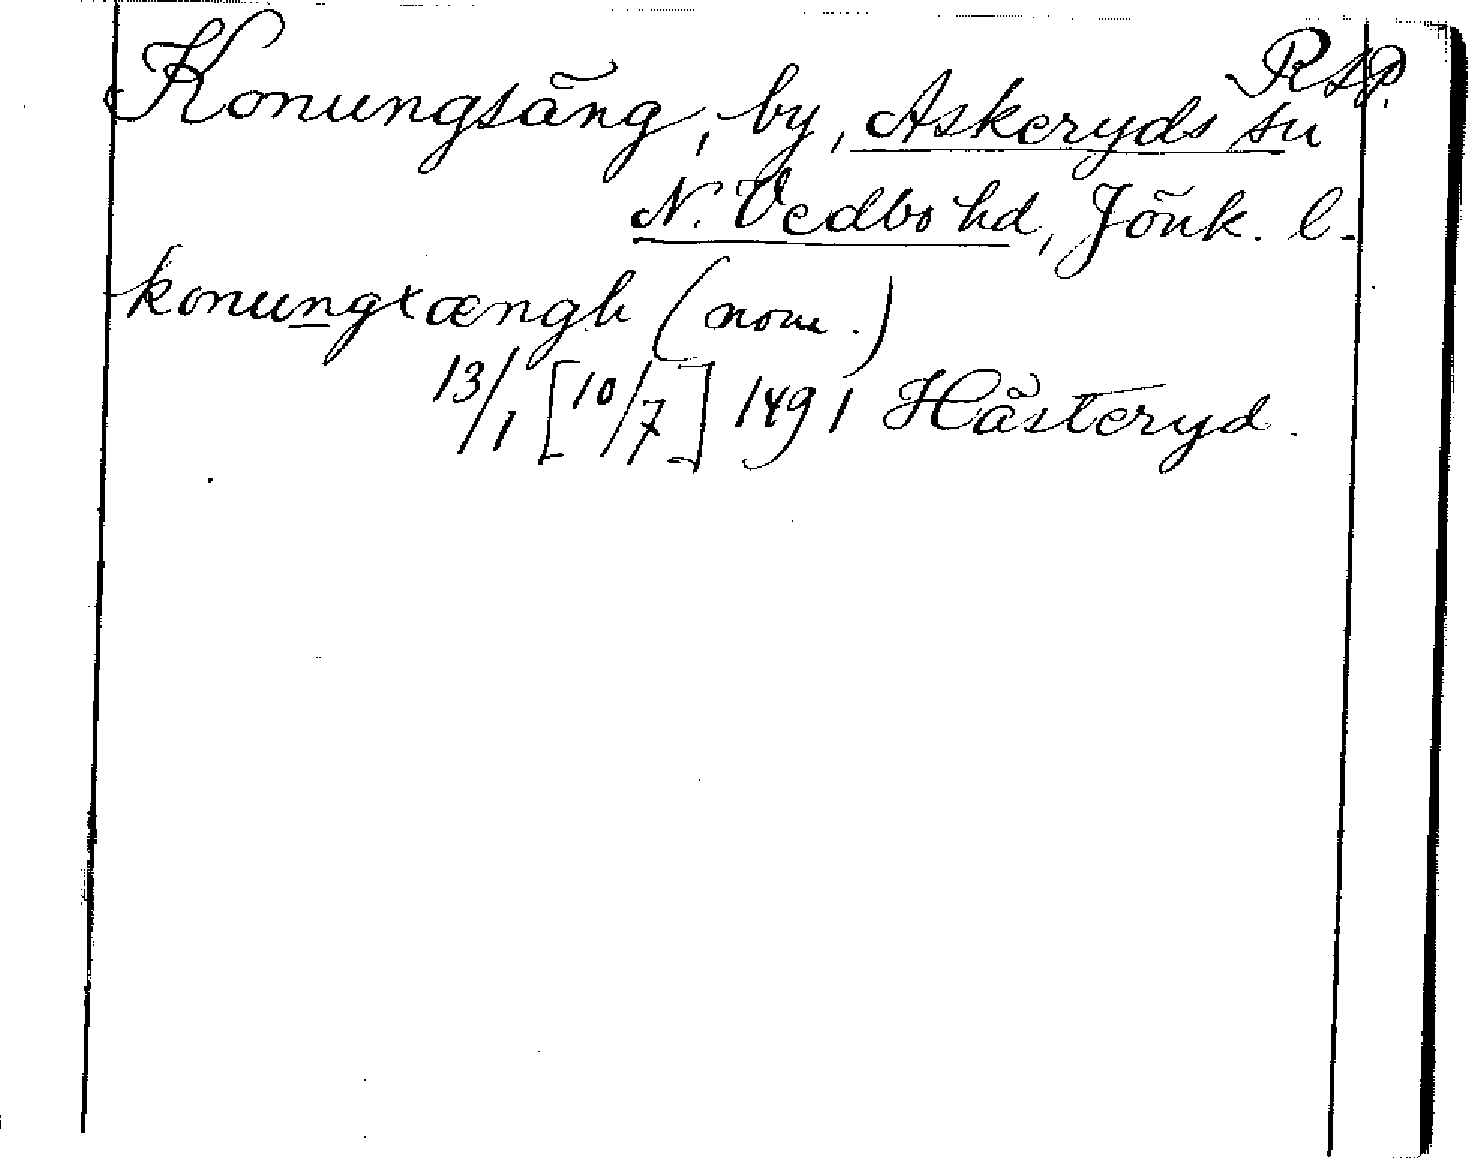 RAP.
Konungsäng, by, Askeryds sn
N. Vedbo hd, Jönk. l.
konungxængh (nom.)
13/1 [10/7] 1491 Hästeryd.